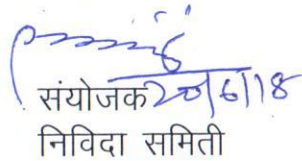 संयोजक 20/6/18
निविदा समिती